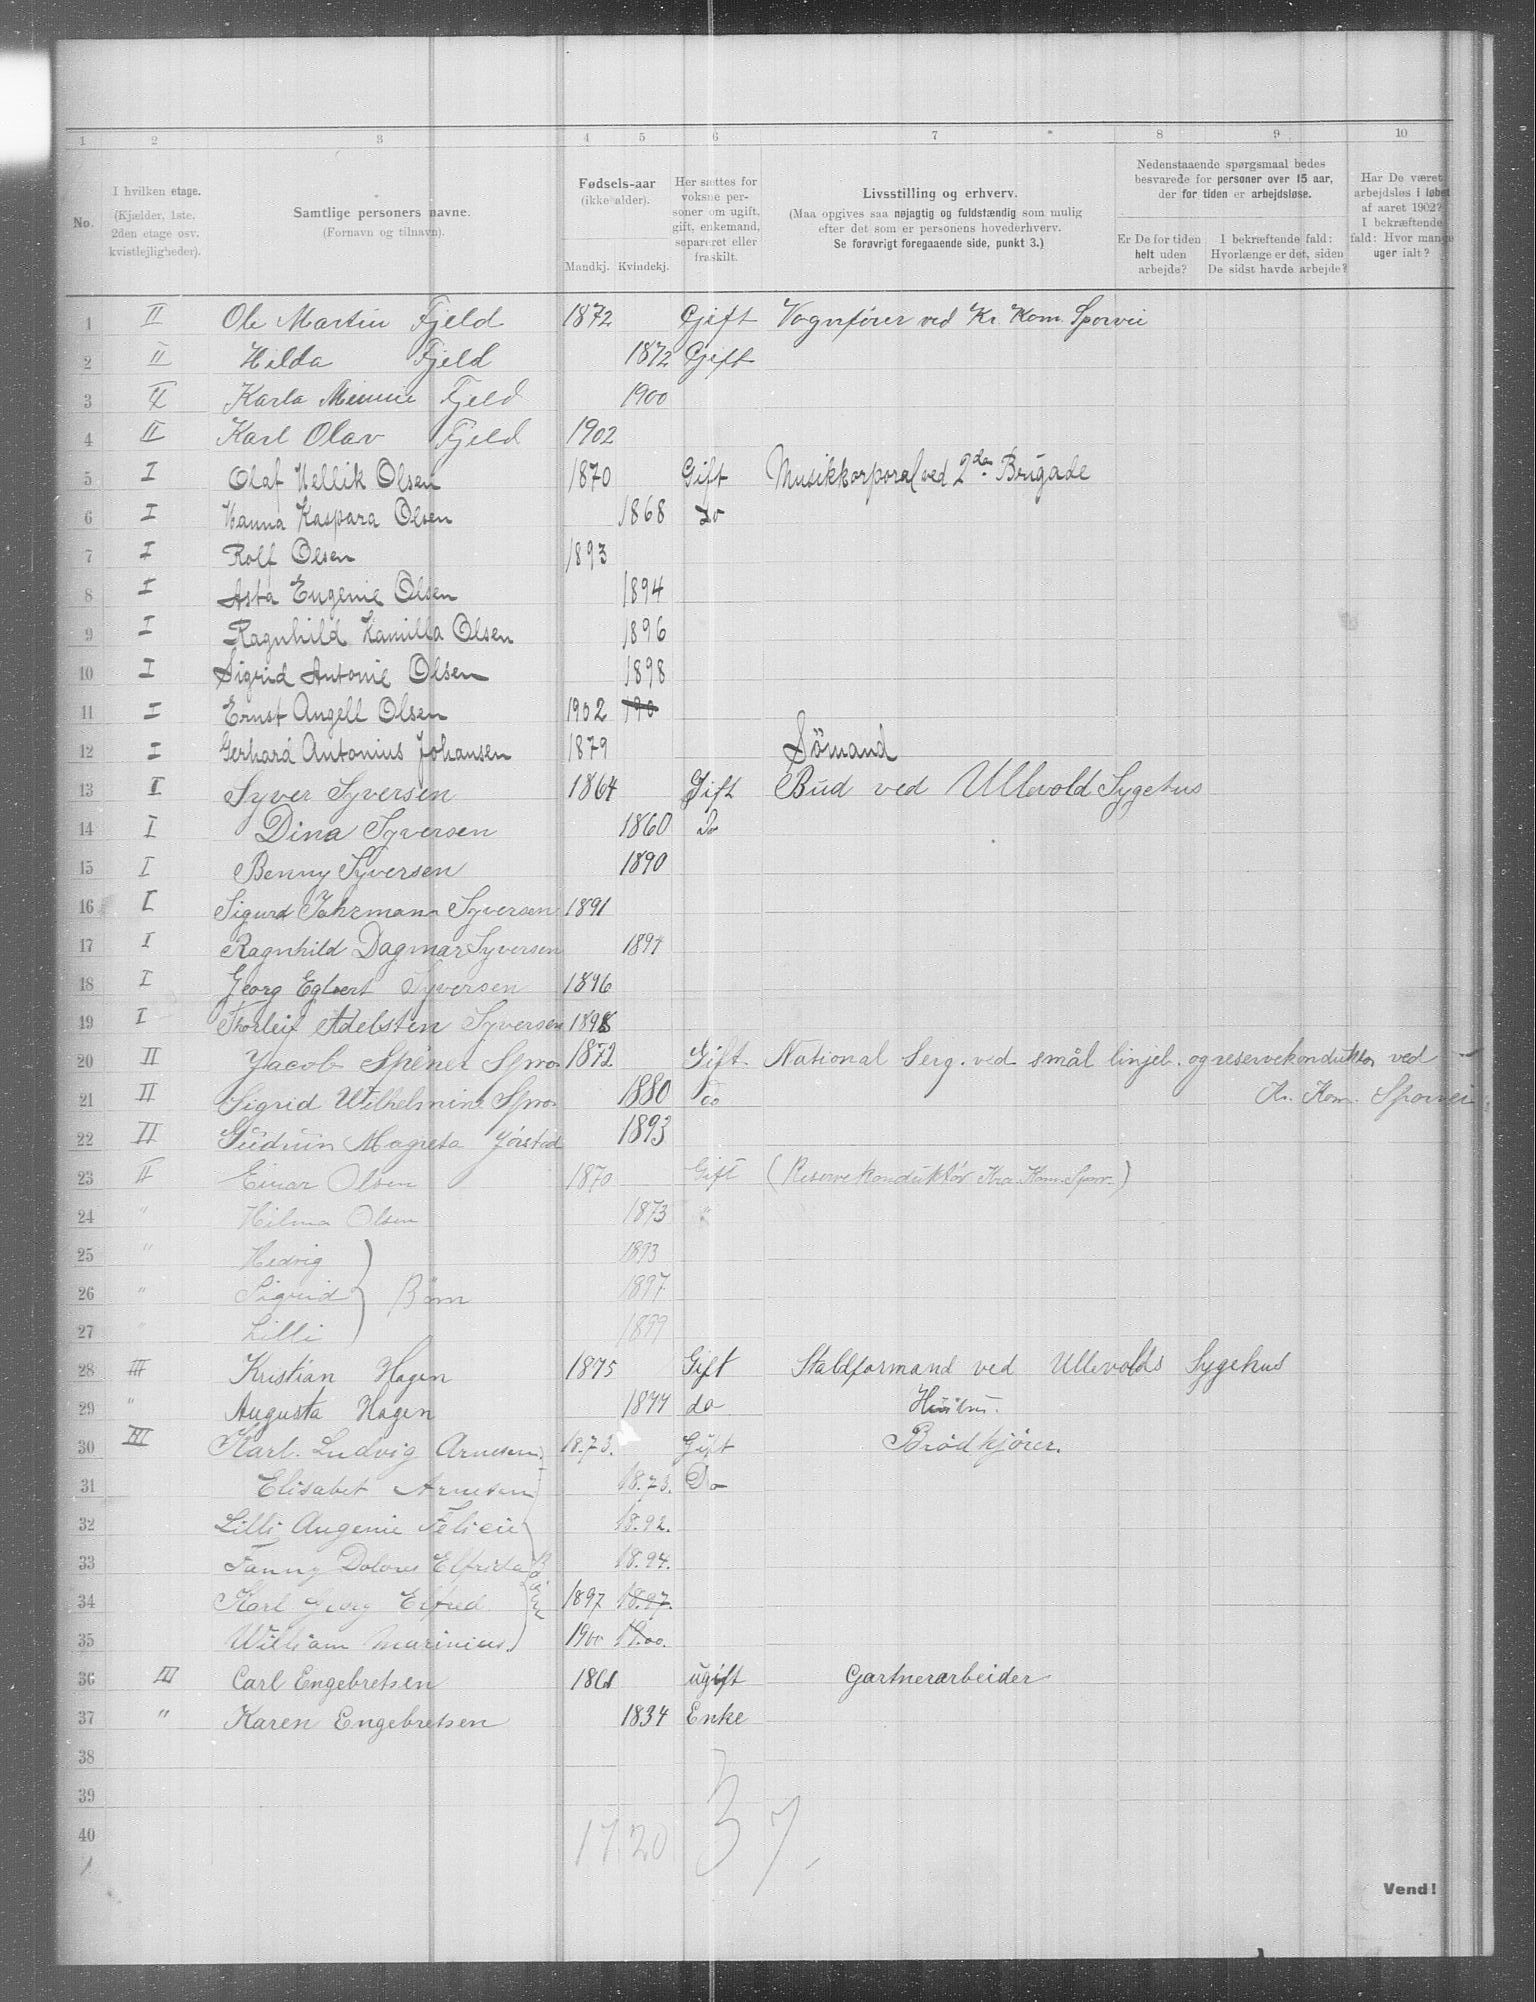 1 2 3 4 5 6 7 8 9 10
No. I hvilken etage. (Kjælder, 1ste, 2den etage osv. kvistlejligheder). Samtlige personers navne. (Fornavn og tilnavn). Fødsels-aar (ikke alder). Mandkj. Kvindekj. Her sættes for voksne personer om ugift, gift, enkemand, separeret eller fraskilt. Livsstilling og erhverv. (Maa opgives saa nøjagtig og fuldstændig som mulig efter det som er personens hovederhverv. Se forøvrigt foregaaende side, punkt 3.) Nedenstaaende spørgsmaal bedes besvarede for personer over 15 aar, der for tiden er arbejdsløse. Er De for tiden helt uden arbejde? I bekræftende fald: Hvorlænge er det, siden De sidst havde arbejde? Har De været arbejdsløs i løbet af aaret 1902? I bekræftende fald: Hvor mange uger ialt?
1 II Ole Martin Fjeld 1872 Gjift Vognfører ved Kr. Kom. Sporvei
2 II Hilda Fjeld 1872 Gjift
3 II Karla Minnie Fjeld 1900
4 II Karl Olav Fjeld 1902
5 I Olaf Hellik Olsen 1870 Gift Musikkorporal ved 2den Brigade
6 I Hanna Kaspara Olsen 1868 Do
7 I Rolf Olsen 1893
8 I Asta Eugenie Olsen 1894
9 I Ragnhild Kamilla Olsen 1896
10 I Sigrid Antonie Olsen 1898
11 I Ernst Angell Olsen 1902 190
12 I Gerhard Antonius Johansen 1879 Sömand
13 I Syver Syversen 1864 Gift Bud ved Ullevold Sygehus
14 I Dina Syversen 1860 Do
15 I Benny Syversen 1890
16 I Sigurd Syversen 1891
17 I Ragnhild Dagmar Syversen 1894
18 I Georg Egbert Syversen 1896
19 I Thorleif Adelsten Syversen 1898
20 II Jacob Spro 1872 Gift. National Serg. ved smål linjeb. og reservekonduktør ved
21 II Sigrid Wilhelmine Spro 1880 Do Kr. Kom. Sporvei
22 II Gudrun Magreta Jørstad 1893
23 II Einar Olsen 1870 Gift (Reservekonduktör Kra Kom. Sporv.)
24 " Hilma Olsen 1873 "
25 " Hedvig 1893
26 " Sigrid Börn 1897
27 " Lilli 1899
28 III Kristian Hagen 1875 Gift Staldformand ved Ullevolds Sygehus
29 " Augusta Hagen 1877 do
30 III Karl. Ludvig Arnesen. 18.73. Gift Brödkjörer.
31 Elisabet Arnesen 18.73. Do
32 Lilli Augenie Felicie 18.92.
33 Fanny Dolores Elfrida 18.94.
34 Karl Georg Elfred 1897 18.97.
35 William Marinius. 1900 19.00.
36 III Carl Engebretsen 1861 ugift Gartnerarbeider
37 " Karen Engebretsen 1834 Enke
38
39
40 17.20 37.
Vend!